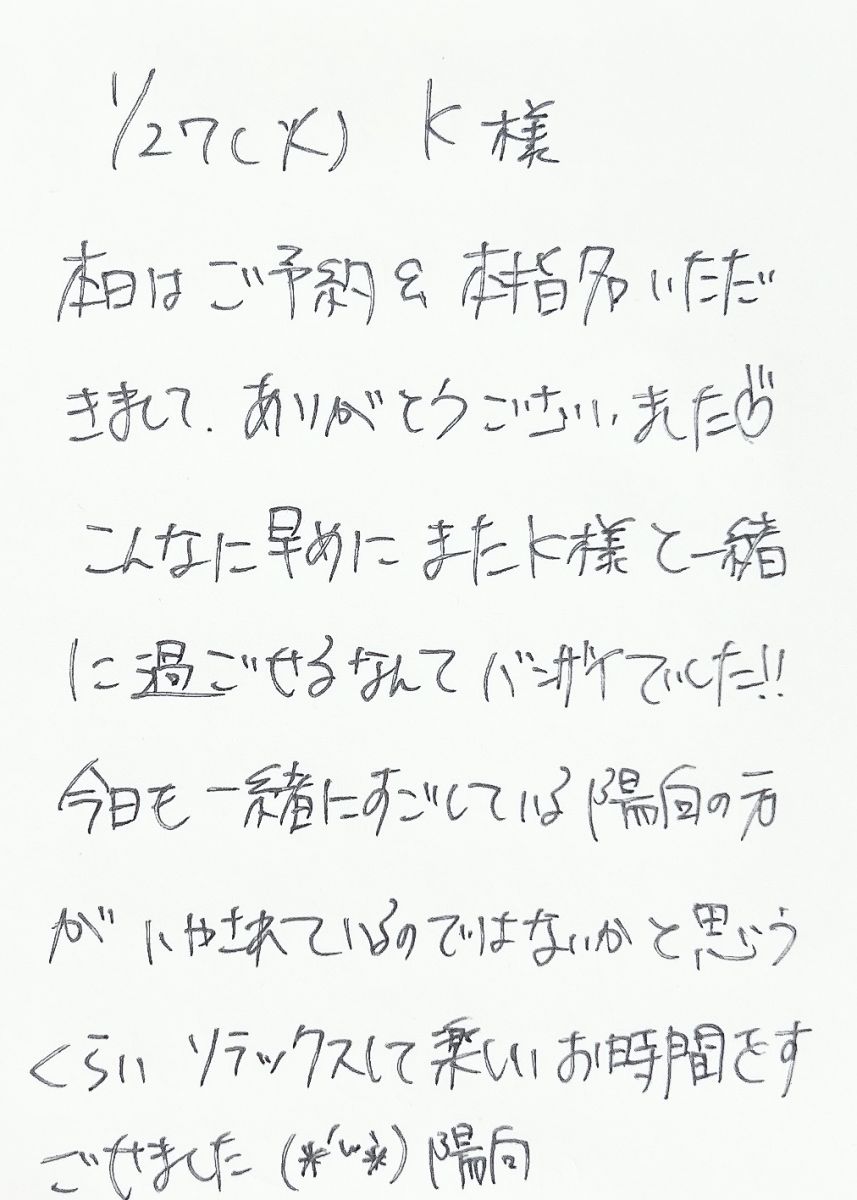 1/27(火) K様
本日はご予約&本指名いただ
きまして、ありがとうございました
こんなに早めにまたK様と一緒
に過ごせるなんてバンザイでした!!
今日も一緒にすごしている陽向の方
がいやされているのではないかと思う
くらいリラックスして楽しいお時間をす
ごせました(*´ω`*)陽向